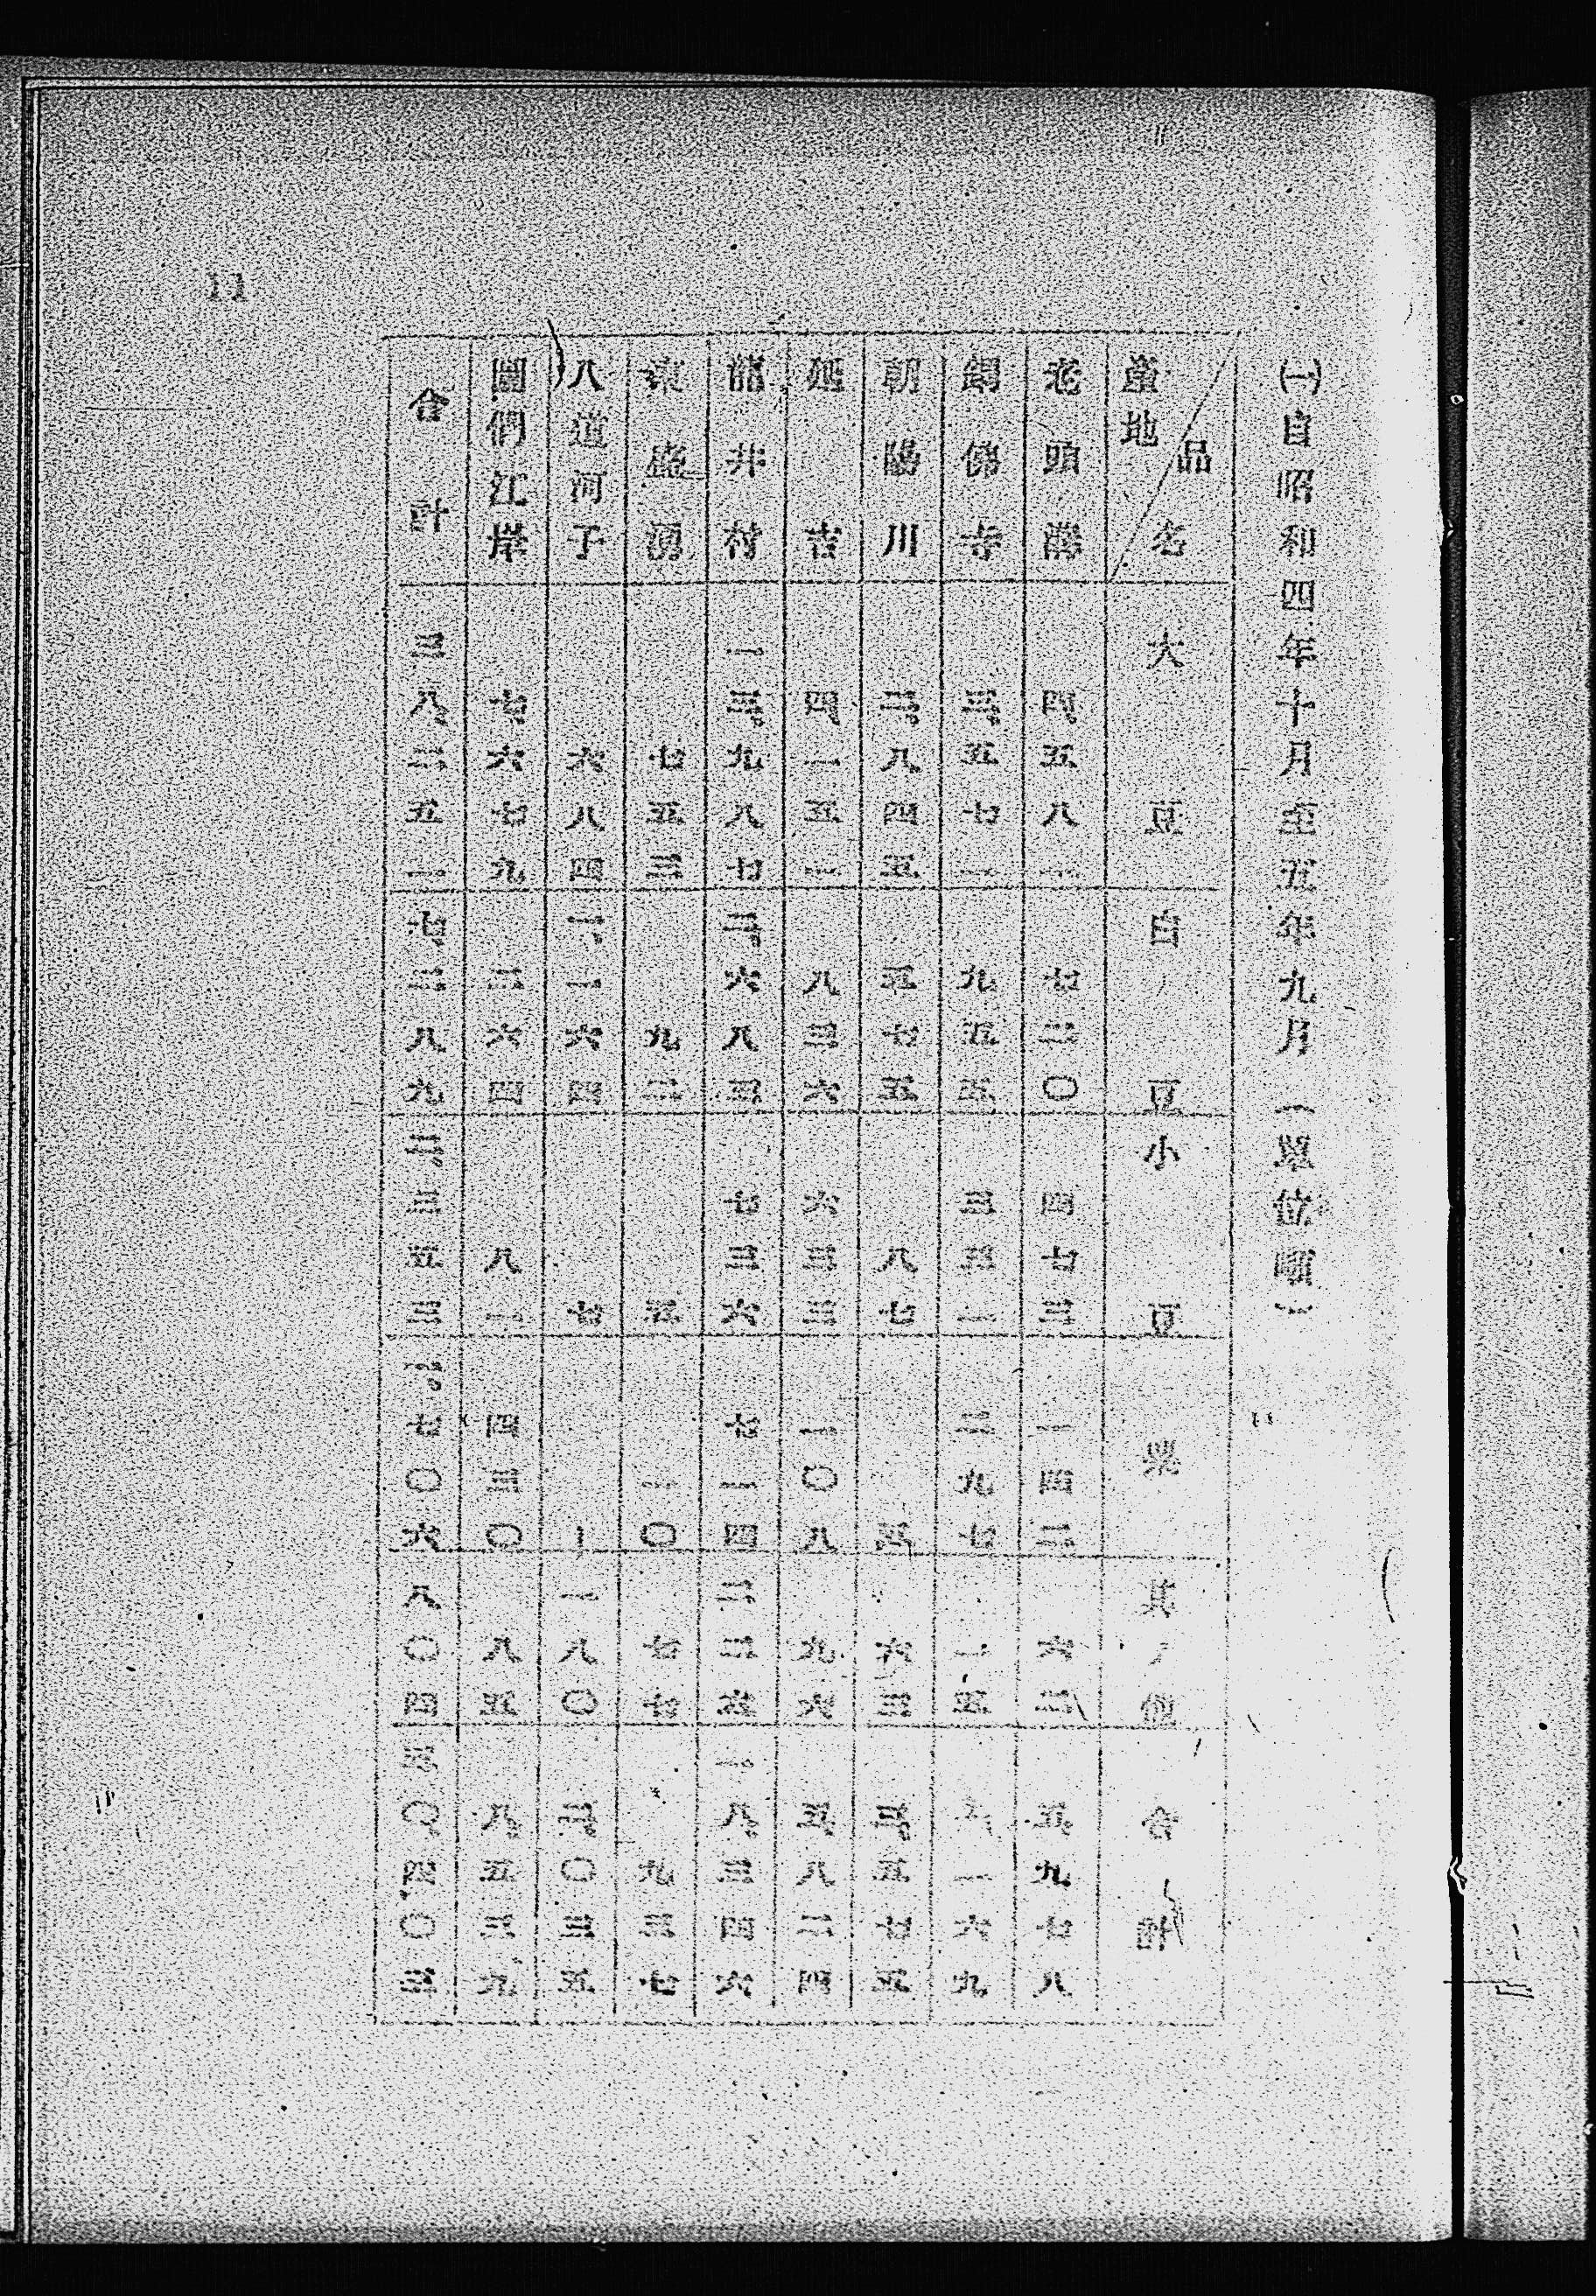 (一)自昭和四年十月至五年九月(單位噸)
產地 品名 大豆 白豆 小豆 粟 其ノ他 合計
老頭溝 四、五八一 七二〇 四七三 一四二 六二 五、九七八
銅佛寺 三、五七一 九五五 三三一 二九七 一五 五、一六九
朝陽川 二、八四五 五七五 八七 五 六三 三、五七五
延吉 四、一五一 八三六 六三三 一〇八 九六 五、八二四
龍井村 一三、九八七 二、六八三 七三六 七一四 二二六 一八、三四六
東盛湧 七五三 九二 五 一〇 七七 九三七
八道河子 六八四 一、一六四 七 ー 一八〇 二、〇三五
圖們江岸 七、六七九 二六四 八一 四三〇 八五 八、五三九
合計 三八、二五一 七、二八九 二、三五三 一、七〇六 八〇四 四〇、四〇三
11